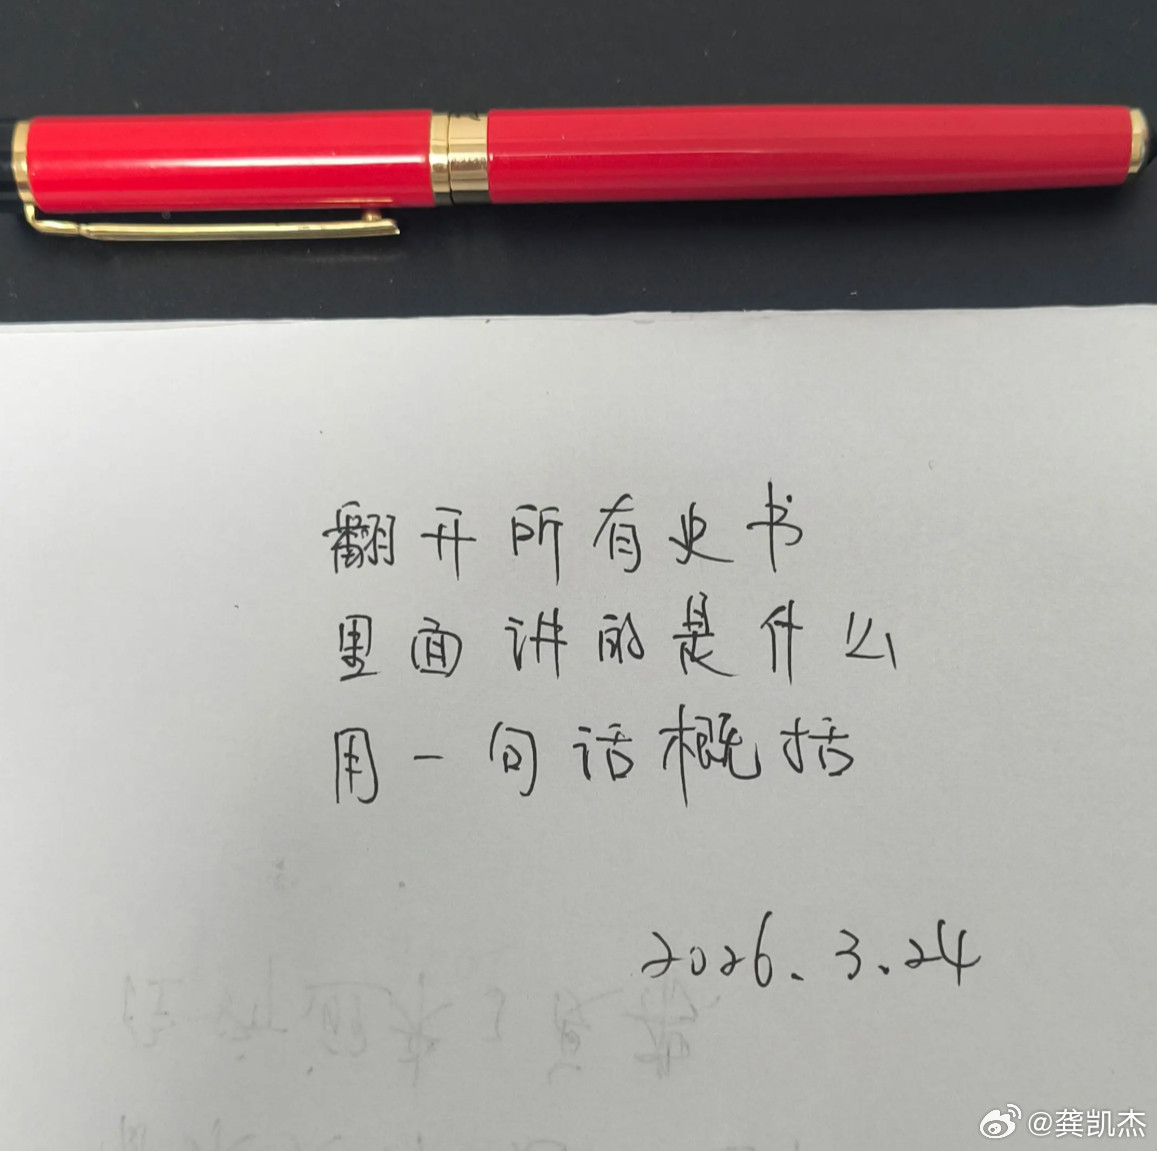 翻开所有史书
里面讲的是什么
用一句话概括
2026.3.24
@龚凯杰